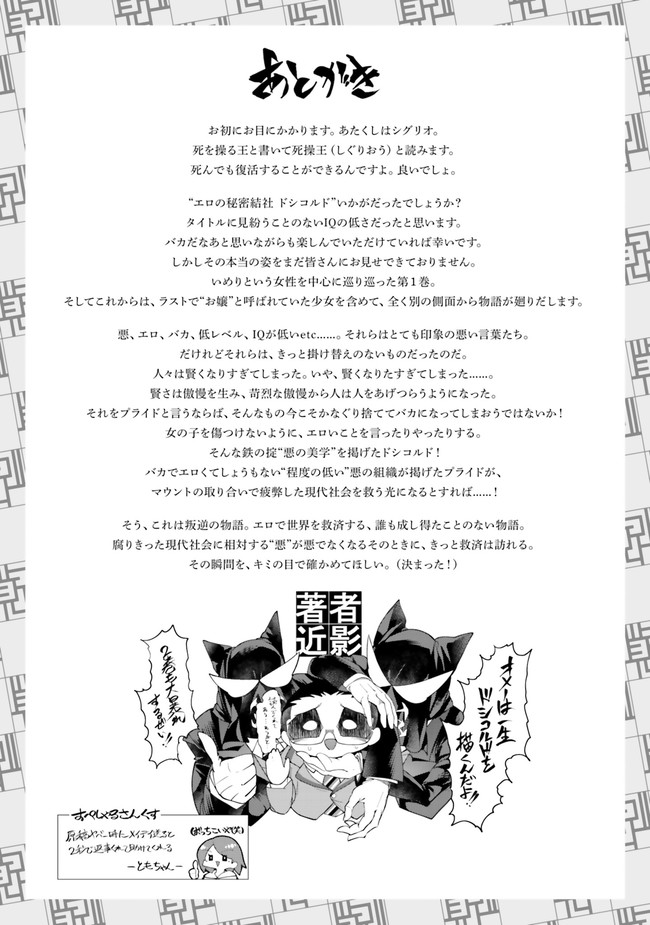 あとがき
お初にお目にかかります。あたくしはシグリオ。
死を操る王と書いて死操王(しぐりおう)と読みます。
死んでも復活することができるんですよ。良いでしょ。
“エロの秘密結社 ドシコルド”いかがだったでしょうか?
タイトルに見紛うことのないIQの低さだったと思います。
バカだなあと思いながらも楽しんでいただけていれば幸いです。
しかしその本当の姿をまだ皆さんにお見せできておりません。
いめりという女性を中心に巡り巡った第1巻。
そしてこれからは、ラストで“お嬢”と呼ばれていた少女を含めて、全く別の側面から物語が廻りだします。
悪、エロ、バカ、低レベル、IQが低いetc……。それらはとても印象の悪い言葉たち。
だけれどそれらは、きっと掛け替えのないものだったのだ。
人々は賢くなりすぎてしまった。いや、賢くなりたすぎてしまった……。
賢さは傲慢を生み、苛烈な傲慢から人は人をあげつらうようになった。
それをプライドと言うならば、そんなもの今こそかなぐり捨ててバカになってしまおうではないか!
女の子を傷つけないように、エロいことを言ったりやったりする。
そんな鉄の掟“悪の美学”を掲げたドシコルド!
バカでエロくてしょうもない“程度の低い”悪の組織が掲げたプライドが、
マウントの取り合いで疲弊した現代社会を救う光になるとすれば……!
そう、これは叛逆の物語。エロで世界を救済する、誰も成し得たことのない物語。
腐りきった現代社会に相対する“悪”が悪でなくなるそのときに、きっと救済は訪れる。
その瞬間を、キミの目で確かめてほしい。(決まった!)
著者近影
オメーは一生
ドシコルドを
描くんだよ!!
2巻も大暴れ
するぜい!!
すぺしゃるさんくす
―ともちゃん―